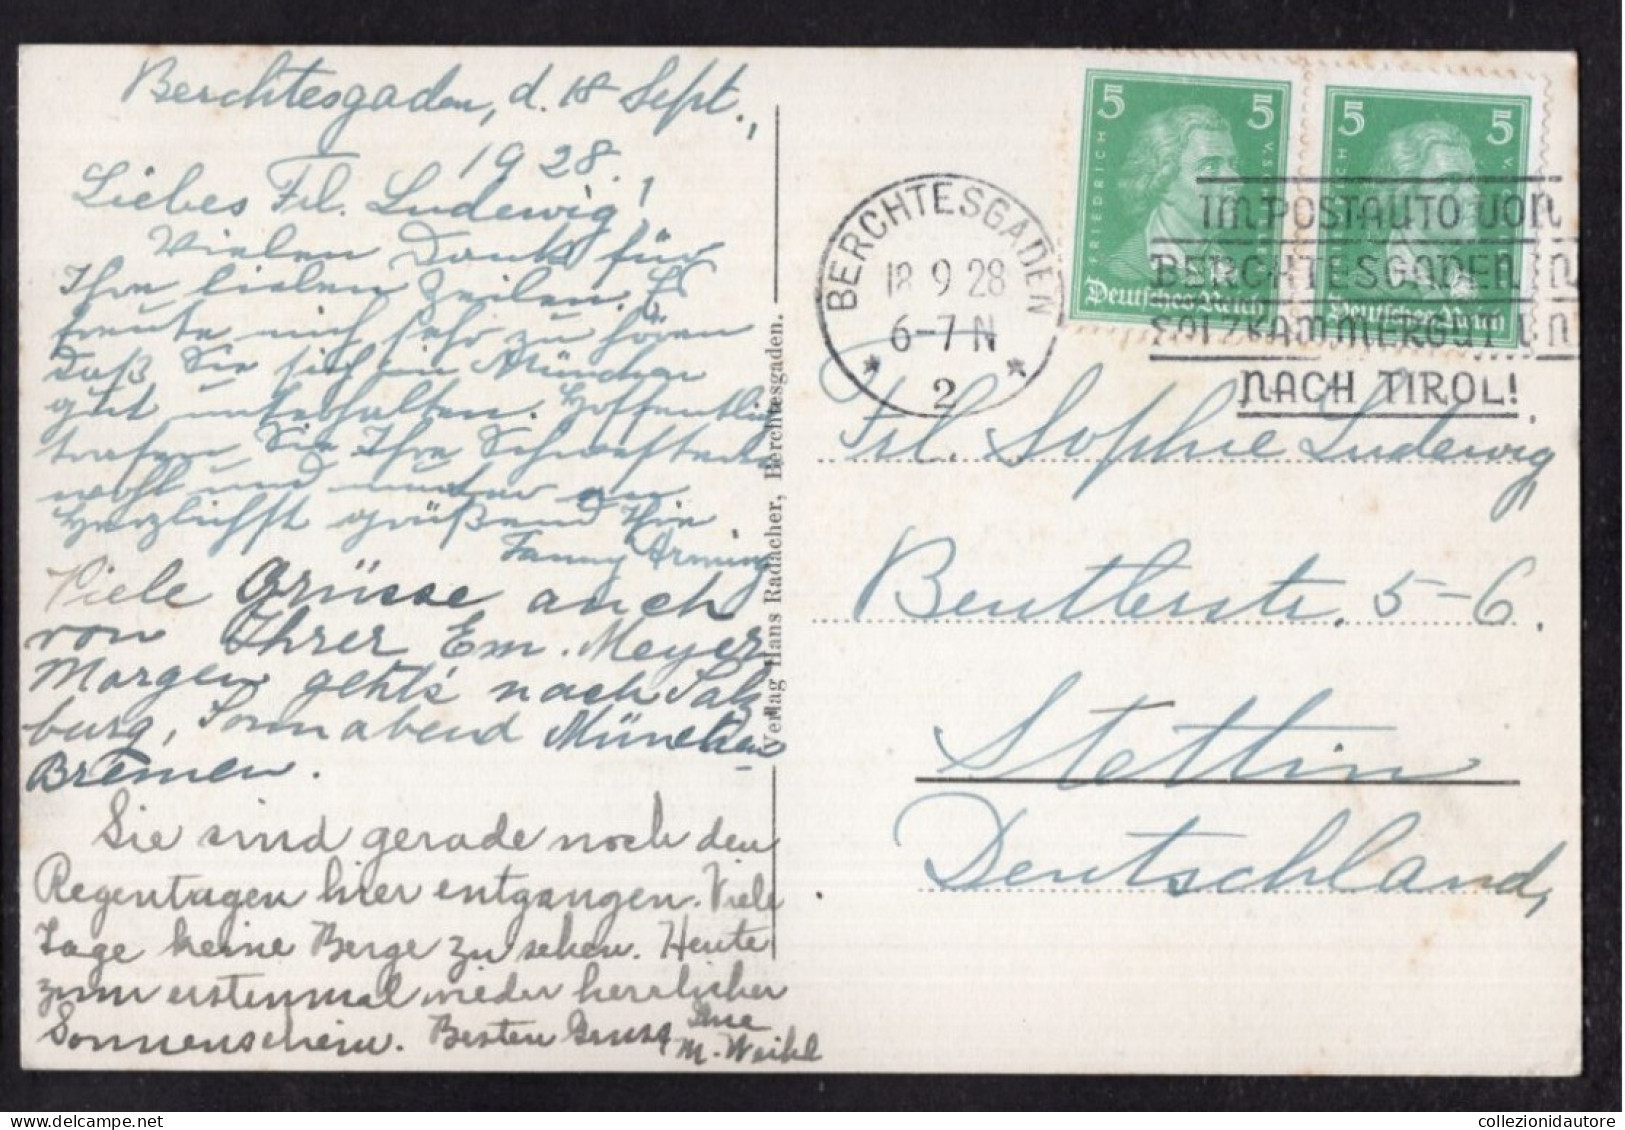 Berchtesgaden, d. 18 Sept.,
1928.
Liebes Frl. Ludewig!
Vielen Dank für
Ihre lieben Zeilen. Es
freute mich sehr zu hören
daß Sie sich in München
gut unterhalten. Hoffentlich
trafen Sie Ihre Schwester
wohl und munter an.
Herzlichst grüßend Ihre
Fanny
Viele Grüsse auch
von Ihrer Em. Meyer
Morgen geht's nach Salz
burg, Sonnabend München
Bremen.
Sie sind gerade noch den
Regentagen hier entgangen. Viele
Tage keine Berge zu sehen. Heute
zum erstenmal wieder herrlicher
Sonnenschein. Besten Gruss Ihre
M.
Verlag Hans Radacher, Berchtesgaden.
BERCHTESGADEN
18 9 28
6-7 N
2
5 5
FRIEDRICH
Deutsches Reich
5 5
Deutsches Reich
IM POSTAUTO VON
BERCHTESGADEN IN
SALZKAMMERGUT U N
NACH TIROL!
Frl. Sophie Ludewig,
Beutlerstr. 5-6.
Stettin
Deutschland,
collezionidautore